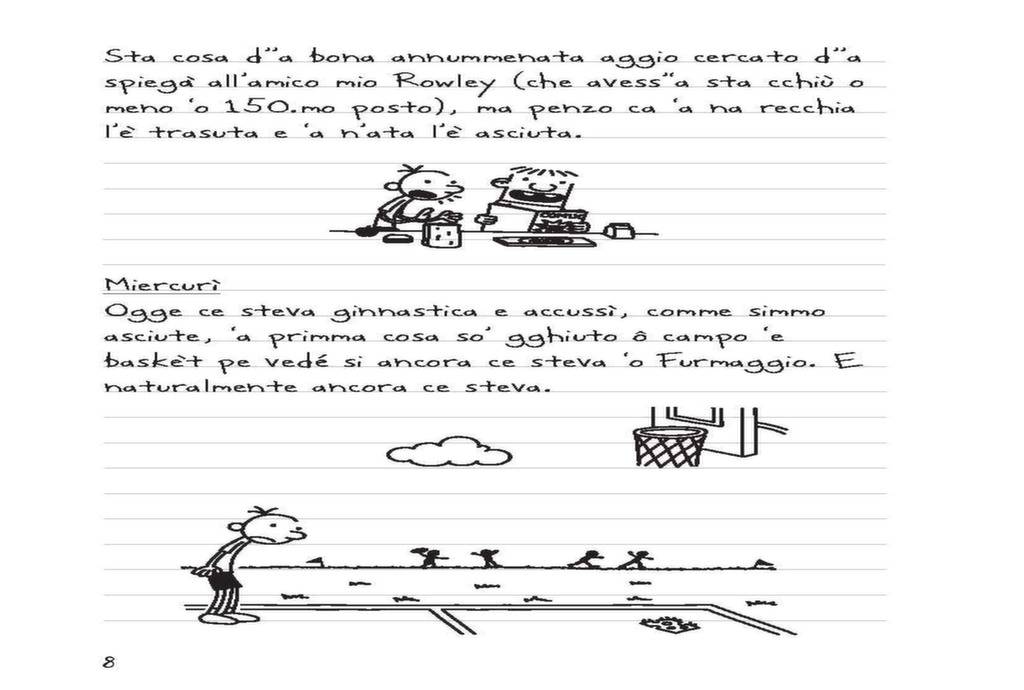 Sta cosa d''a bona annummenata aggio cercato d''a
spiegà all'amico mio Rowley (che avess''a sta cchiù o
meno 'o 150.mo posto), ma penzo ca 'a na recchia
l'è trasuta e 'a n'ata l'è asciuta.
COMIC
Miercurì
Ogge ce steva ginnastica e accussì, comme simmo
asciute, 'a primma cosa so' gghiuto ô campo 'e
baskèt pe vedé si ancora ce steva 'o Furmaggio. E
naturalmente ancora ce steva.
8